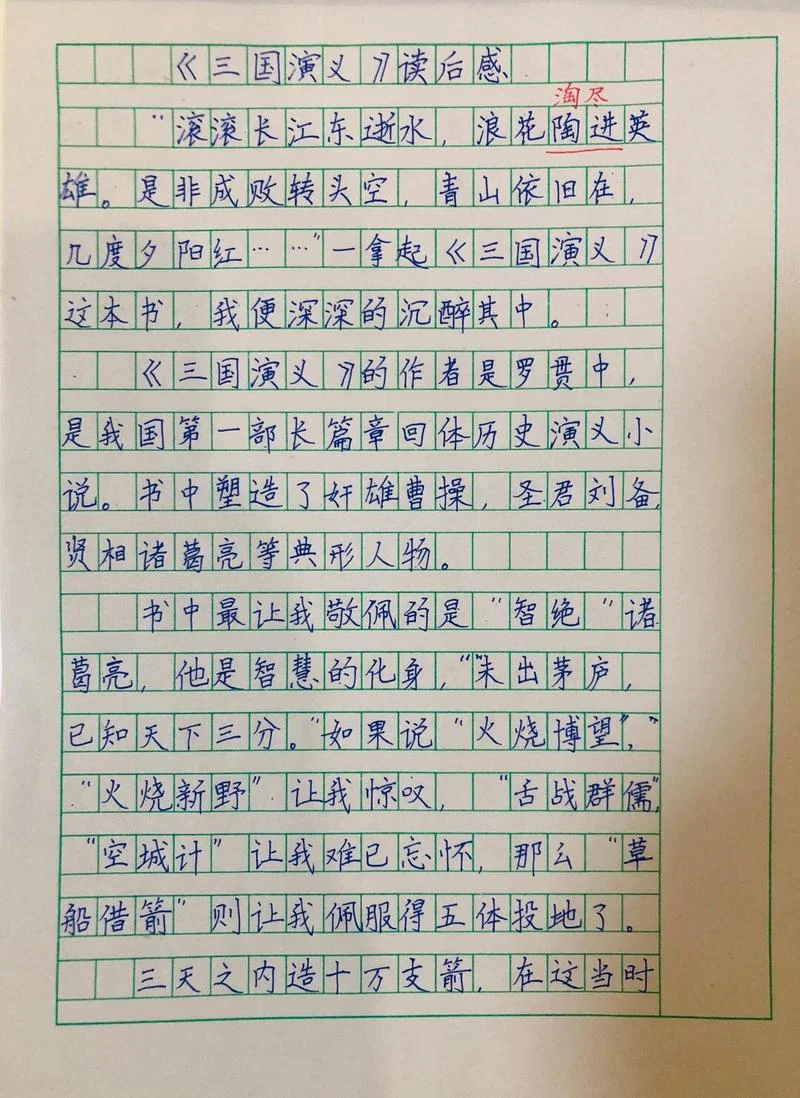 《三国演义》读后感
淘尽
“滚滚长江东逝水，浪花陶进英
雄。是非成败转头空，青山依旧在，
几度夕阳红……”一拿起《三国演义》
这本书，我便深深的沉醉其中。
《三国演义》的作者是罗贯中，
是我国第一部长篇章回体历史演义小
说。书中塑造了奸雄曹操，圣君刘备，
贤相诸葛亮等典形人物。
书中最让我敬佩的是“智绝“诸
葛亮，他是智慧的化身，“未出茅庐，
已知天下三分。”如果说“火烧博望”，
“火烧新野”让我惊叹，“舌战群儒”，
“空城计”让我难已忘怀，那么“草
船借箭”则让我佩服得五体投地了。
三天之内造十万支箭，在这当时